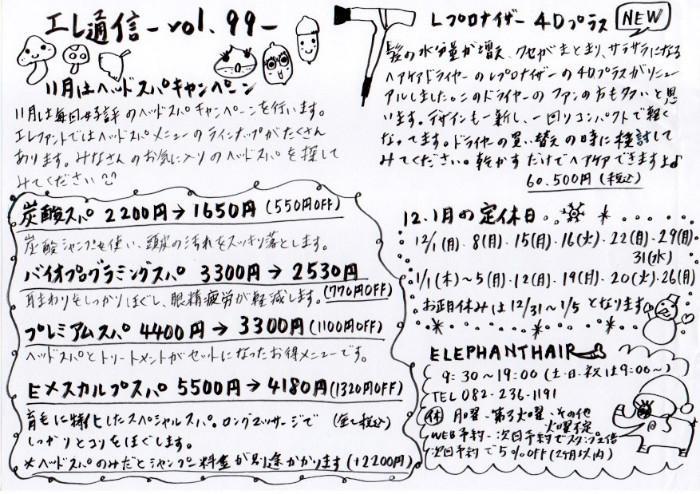 エレ通信 - vol. 99 -
11月はヘッドスパキャンペーン
11月は毎回好評のヘッドスパキャンペーンを行います。
エレファントではヘッドスパメニューのラインナップがたくさん
あります。みなさんのお気に入りのヘッドスパを探して
みてください
炭酸スパ 2200円→1650円 (550円OFF)
炭酸シャンプーを使い、頭皮の汚れをスッキリ落とします。
バイオプログラミングスパ 3300円→2530円
(770円OFF)
耳まわりをしっかりほぐし、眼精疲労が軽減します。
プレミアムスパ 4400円→3300円 (1100円OFF)
ヘッドスパとトリートメントがセットになったお得メニューです。
Eメスカルプスパ 5500円→4180円 (1320円OFF)
育毛に特化したスペシャルスパ。ロングマッサージで (全て税込)
しっかりとコリをほぐします。
*ヘッドスパのみだとシャンプー料金が別途かかります (+2200円)
レプロナイザー 4Dプラス NEW
髪の水分量が増え、クセがまとまり、サラサラになる
ヘアケアドライヤーのレプロナイザーの4Dプラスがリニュー
アルしました。このドライヤーのファンの方も多いと思
います。デザインも一新し、一回りコンパクトで軽く
なってます。ドライヤーの買い替えの時に検討して
みてください。乾かすだけでヘアケアできますよ♪
60.500円 (税込)
12.1月の定休日
12/1(月).8(月).15(月).16(火).22(月).29(月)
31(水)
1/1(木)~5(月).12(月).19(月).20(火).26(月)
お正月休みは12/31~1/5となります
ELEPHANTHAIR
9:30~19:00 (土・日・祝は9:00~)
TEL 082-236-1191
休 月曜・第3火曜・その他
火曜不定
WEB予約・次回予約でスタンプ2倍
次回予約で5%OFF(2ヶ月以内)